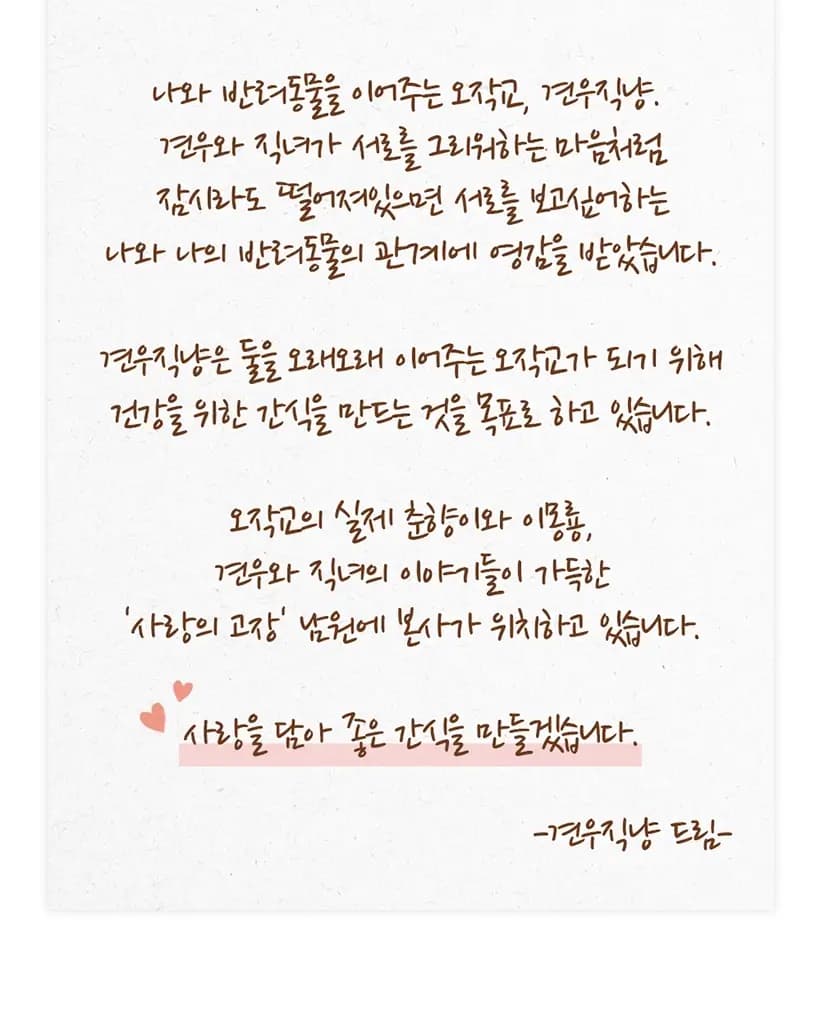 나와 반려동물을 이어주는 오작교, 견우직냥.
견우와 직녀가 서로를 그리워하는 마음처럼
잠시라도 떨어져있으면 서로를 보고싶어하는
나와 나의 반려동물의 관계에 영감을 받았습니다.
견우직냥은 둘을 오래오래 이어주는 오작교가 되기 위해
건강을 위한 간식을 만드는 것을 목표로 하고 있습니다.
오작교의 실제 춘향이와 이몽룡,
견우와 직녀의 이야기들이 가득한
'사랑의 고장' 남원에 본사가 위치하고 있습니다.
사랑을 담아 좋은 간식을 만들겠습니다.
-견우직냥 드림-